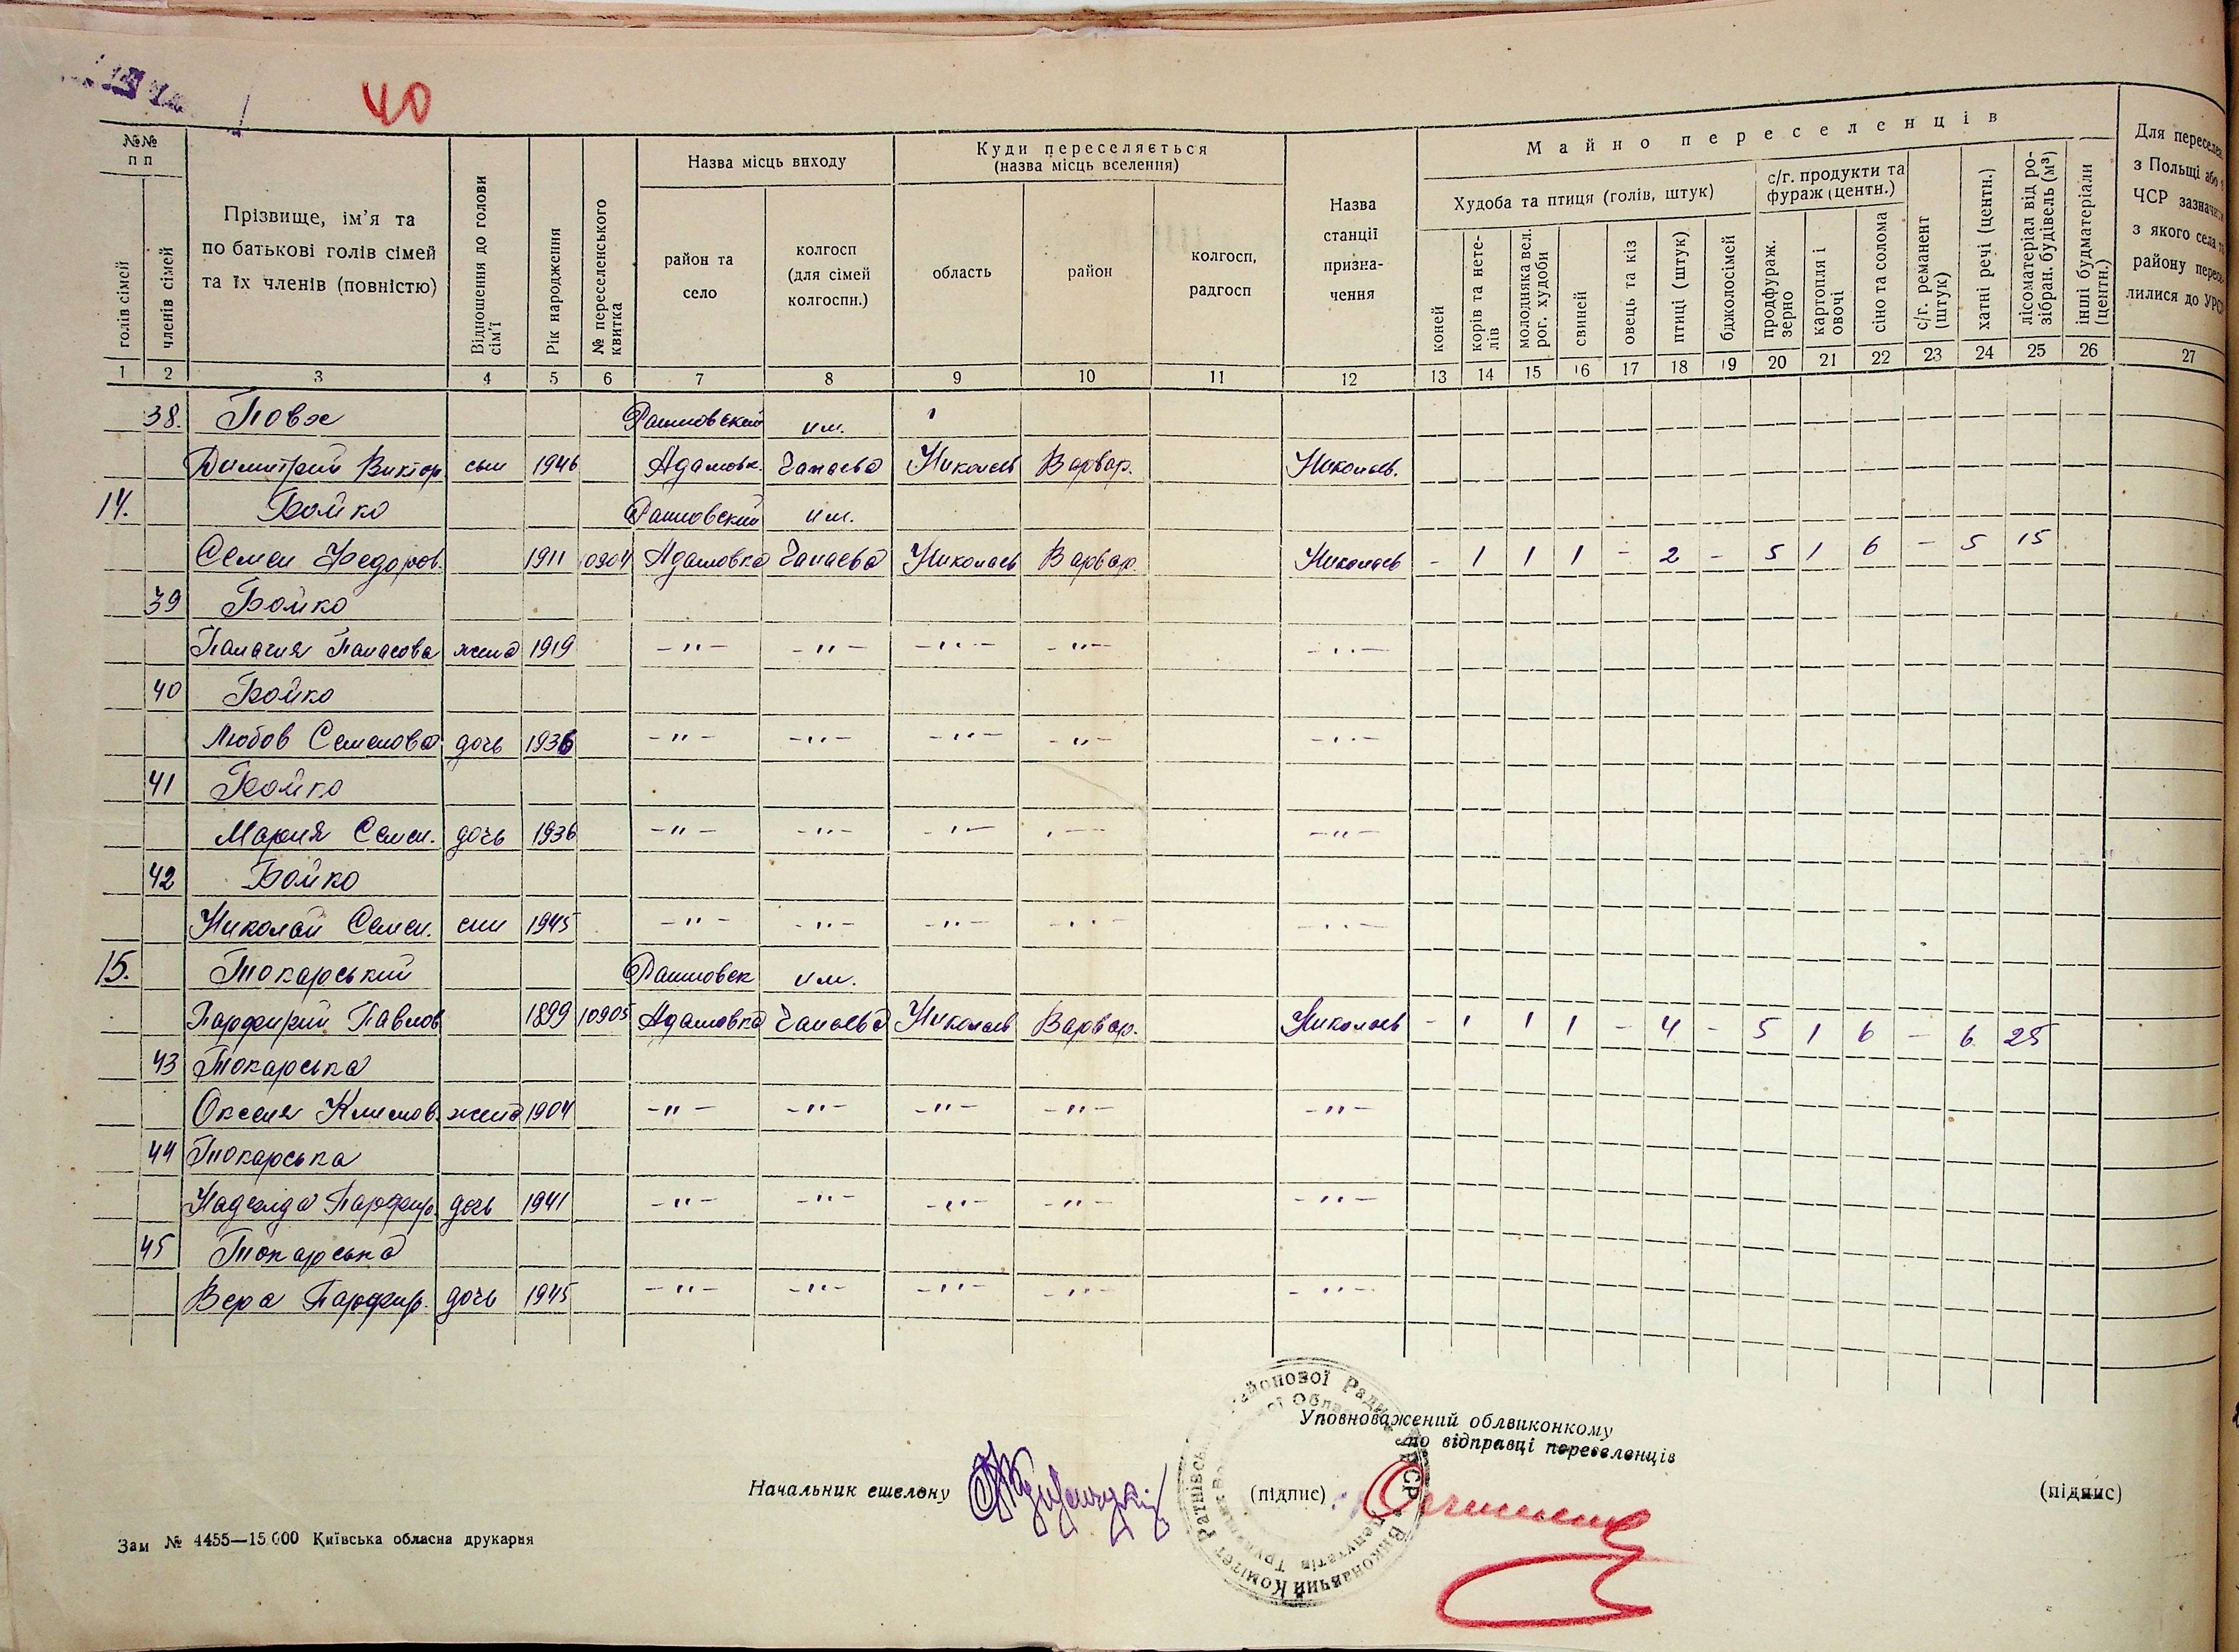 40
№№ п п
Прізвище, ім'я та по батькові голів сімей та їх членів (повністю)
Відношення до голови сім'ї
Рік народження
№ переселенського квитка
Назва місць виходу
Куди переселяється (назва місць вселення)
Назва станції призначення
Майно переселенців
Для переселен.
з Польщі або з
ЧСР зазначити
з якого села та
району пересе-
лилися до УРСР
голів сімей
членів сімей
район та село
колгосп (для сімей колгоспн.)
область
район
колгосп, радгосп
Худоба та птиця (голів, штук)
с/г. продукти та фураж (центн.)
с/г. реманент (штук)
хатні речі (центн.)
лісоматеріал від розібран. будівель (м³)
інші будматеріали (центн.)
коней
корів та нетелів
молодняка вел. рог. худоби
свиней
овець та кіз
птиці (штук)
бджолосімей
продфураж. зерно
картопля і овочі
сіно та солома
1 2 3 4 5 6 7 8 9 10 11 12 13 14 15 16 17 18 19 20 21 22 23 24 25 26 27
38. Повх Ратновский им.
Димитрий Виктор. сын 1946 Адамовк. Чапаева Николаев Варвар. Николаев.
14. Бойко Ратновский им.
Семен Федоров. 1911 10904 Адамовка Чапаева Николаев Варвар. Николаев - 1 1 1 - 2 - 5 1 6 - 5 15
39 Бойко
Палагия Панасова жена 1919 -"- -"- -"- -"- -"-
40 Бойко
Любов Семенова дочь 1936 -"- -"- -"- -"- -"-
41 Бойко
Мария Семен. дочь 1936 -"- -"- -"- -"- -"-
42 Бойко
Николай Семен. сын 1945 -"- -"- -"- -"- -"-
15. Токарський Ратновск им.
Парфирий Павлов 1899 10905 Адамовка Чапаева Николаев Варвар. Николаев - 1 1 1 - 4 - 5 1 6 - 6 25
43 Токарська
Оксеня Климов. жена 1904 -"- -"- -"- -"- -"-
44 Токарська
Надежда Парфир. дочь 1941 -"- -"- -"- -"- -"-
45 Токарська
Вера Парфир. дочь 1945 -"- -"- -"- -"- -"-
Уповноважений облвиконкому
по відправці переселенців
Начальник ешелону (підпис) (підпис)
Виконавчий Комітет Ратнівської Районової Ради
Депутатів Трудящих
Зам № 4455—15.000 Київська обласна друкарня